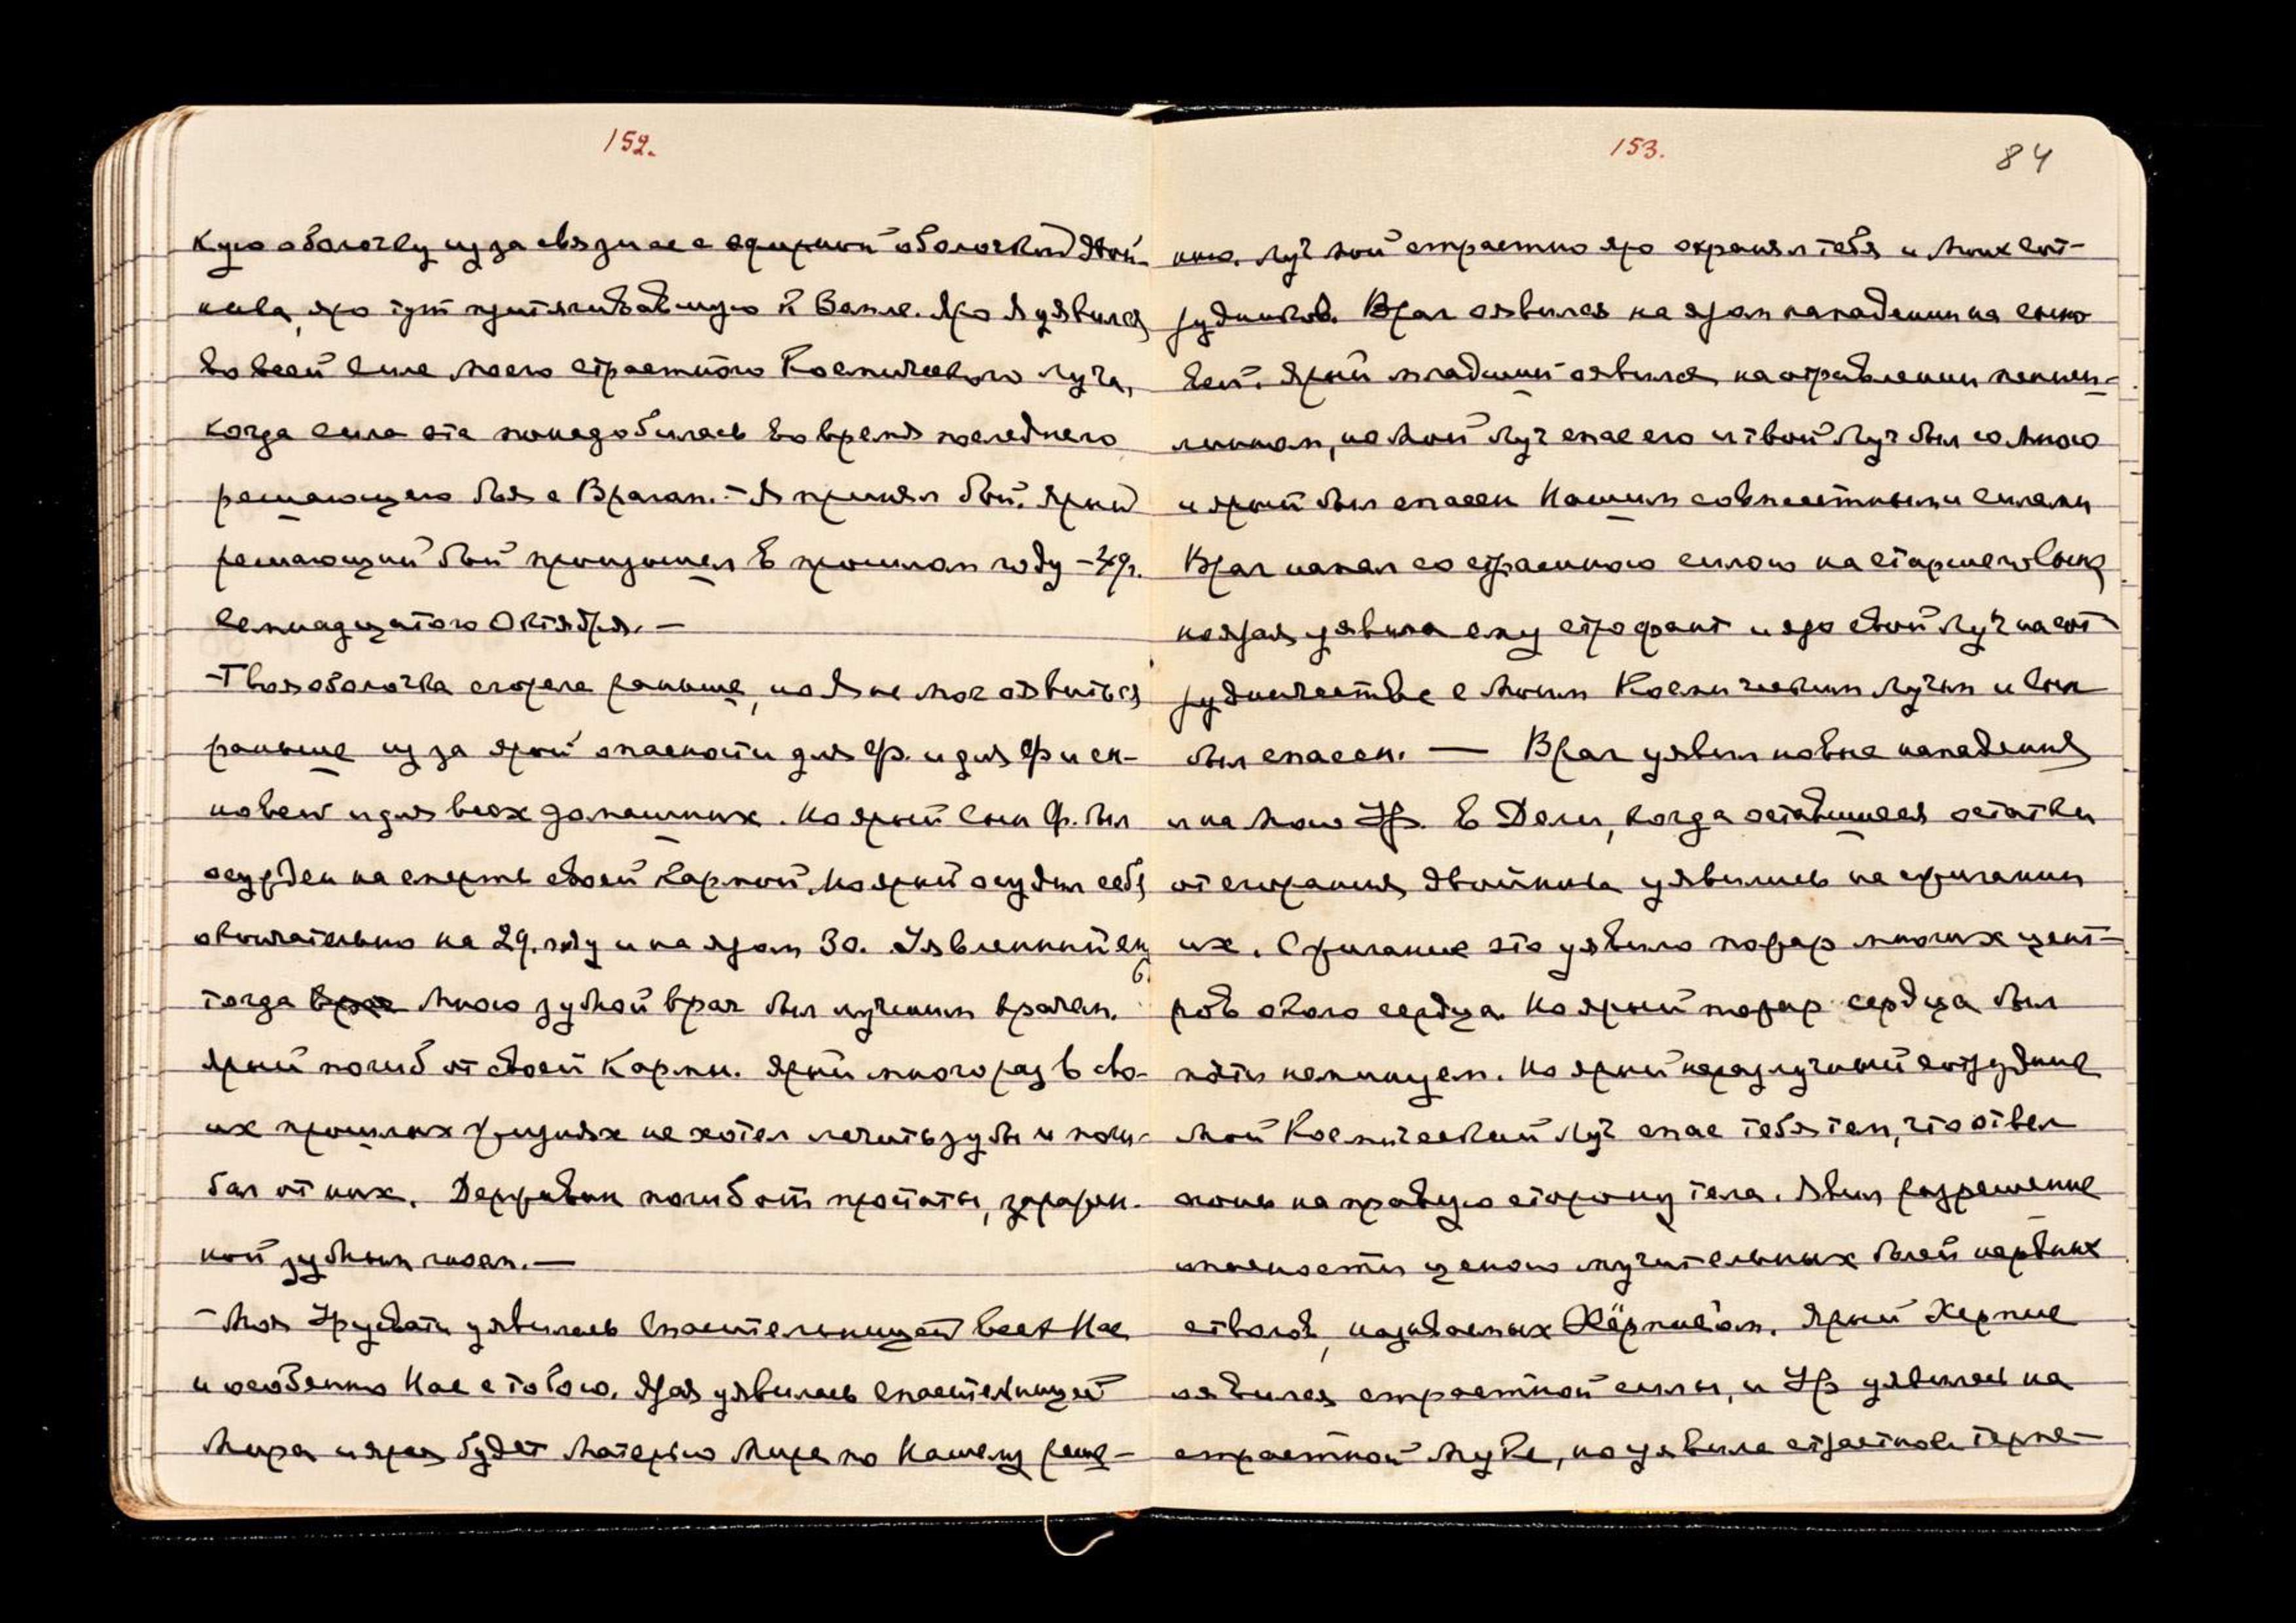 152.
кую оболочку из за связи ее с эфирной оболочкой двой-
ника, яро тут притягивавшую к Земле. Яро Я уявился
во всей силе Моего страстного Космического Луча,
когда сила эта понадобилась во время последнего
решающего боя с Врагом. – Я принял бой. Ярый
решающий бой произошел в прошлом году – 49г.
семнадцатого Октября. –
– Твоя оболочка сгорела раньше, но Я не мог явиться
раньше из за ярой опасности для Ф. и для Ф и сы-
новей и для всех домашних. Но ярый сын Ф. был
осужден на смерть своей Кармой. Но ярый осудил себя
окончательно на 29. году и на яром 30. Уявленный ему
тогда Мною зубной врач был лучшим врачем.
Ярый погиб от своей Кармы. Ярый много раз в сво-
их прошлых жизнях не хотел лечить зубы и поги-
бал от них. Державин погиб от простаты, заражен-
ной зубным гноем. –
– Моя Урусвати уявилась Спасительницей всех Нас
и особенно Нас с тобою. Ярая уявилась спасительницей
Мира и ярая будет Матерью Мира по Нашему реше-
153.
84
нию. Луч Мой страстно яро охранял тебя и Моих сот-
рудников. Враг явился на яром нападении на сыно
вей. Ярый младший явился на отравлении пеници-
лином, но Мой Луч спас его и твой Луч был со Мною
и ярый был спасен Нашими совместными силами
Враг напал со страшною силою на старшего сына
но ярая уявила ему строфант и яро свой Луч на сот-
рудничестве с Моим Космическим Лучем и сын
был спасен. — Враг уявил новые нападения
и на Мою Ур. в Дели, когда оставшиеся остатки
от сгорания двойника уявились на сжигании
их. Сжигание это уявило пожар многих цент-
ров около сердца. Но ярый пожар сердца был
почти неминуем. Но ярый неразлучный сотрудник
Мой Космический Луч спас тебя тем, что отвел
огонь на правую сторону тела. Явил разрешение
опасности ценою мучительных болей нервных
стволов, называемых Хёрпис'ом. Ярый Херпис
явился страстной силы, и Ур уявилась на
страстной Муке, но уявила страстное терпе-